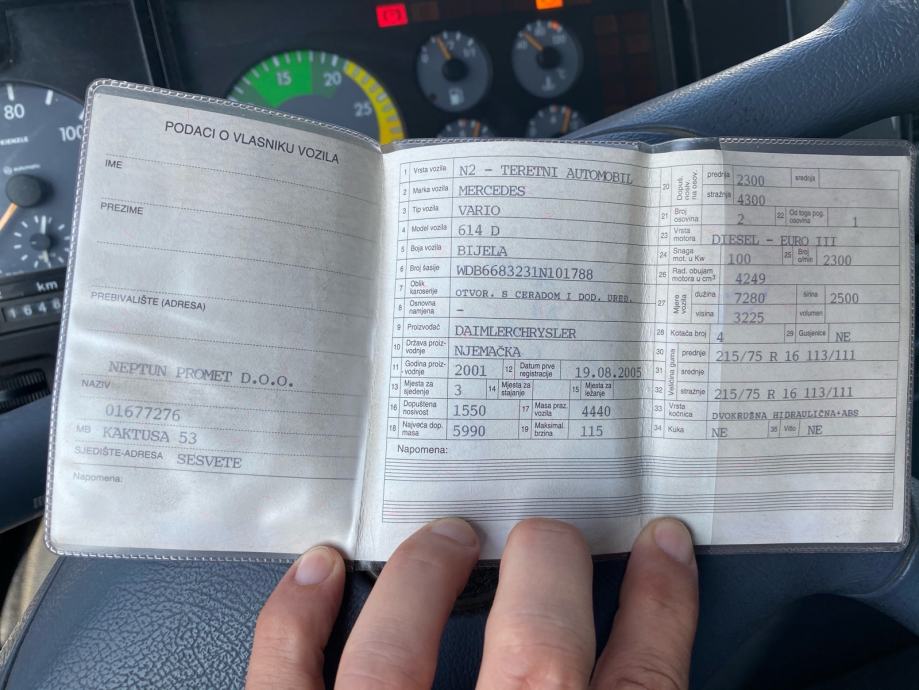 80
100
km
15
20
25
PODACI O VLASNIKU VOZILA
IME
PREZIME
PREBIVALIŠTE (ADRESA)
NEPTUN PROMET D.O.O.
NAZIV
01677276
MB KAKTUSA 53
SJEDIŠTE-ADRESA SESVETE
Napomena:
1 Vrsta vozila N2 - TERETNI AUTOMOBIL
2 Marka vozila MERCEDES
3 Tip vozila VARIO
4 Model vozila 614 D
5 Boja vozila BIJELA
6 Broj šasije WDB6683231N101788
7 Oblik karoserije OTVOR. S CERADOM I DOD. UREĐ.
8 Osnovna namjena -
9 Proizvođač DAIMLERCHRYSLER
10 Država proizvodnje NJEMAČKA
11 Godina proizvodnje 2001 12 Datum prve registracije 19.08.2005
13 Mjesta za sjedenje 3 14 Mjesta za stajanje 15 Mjesta za ležanje
16 Dopuštena nosivost 1550 17 Masa praz. vozila 4440
18 Najveća dop. masa 5990 19 Maksimal. brzina 115
Napomena:
20 Dopuš. nosiv. na osov. prednja 2300 srednja
stražnja 4300
21 Broj osovina 2 22 Od toga pog. osovina 1
23 Vrsta motora DIESEL - EURO III
24 Snaga mot. u Kw 100 25 Broj o/min 2300
26 Rad. obujam motora u cm³ 4249
27 Mjere vozila dužina 7280 širina 2500
visina 3225 volumen
28 Kotača broj 4 29 Gusjenice NE
30 Veličina guma prednje 215/75 R 16 113/111
31 srednje
32 stražnje 215/75 R 16 113/111
33 Vrsta kočnica DVOKRUŽNA HIDRAULIČNA+ABS
34 Kuka NE 35 Vitlo NE